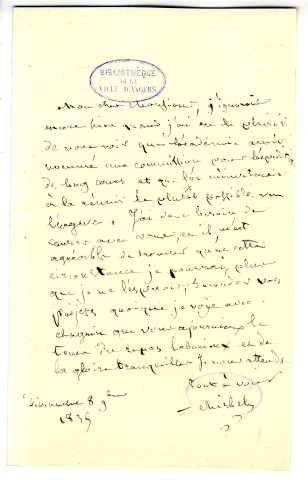 BIBLIOTHÈQUE
DE LA
VILLE D'ANGERS
Mon cher Monsieur, j'ignorais
encore hier quand j'ai eu le plaisir
de vous voir que l'académie avait
nommé une commission pour
de long cours et que l'on
à la réunir le plutôt possible vu
l'urgence. J'ai donc besoin de
causer avec vous, et il m'est
agréable de trouver que cette
circonstance je pourrai, plus
que je ne l'espérais, seconder vos
projets quoique je voye avec
chagrin que vous
du repos laborieux et de
la gloire tranquille. Je vous attends
tout à vous
Dimanche 8 9bre
1835